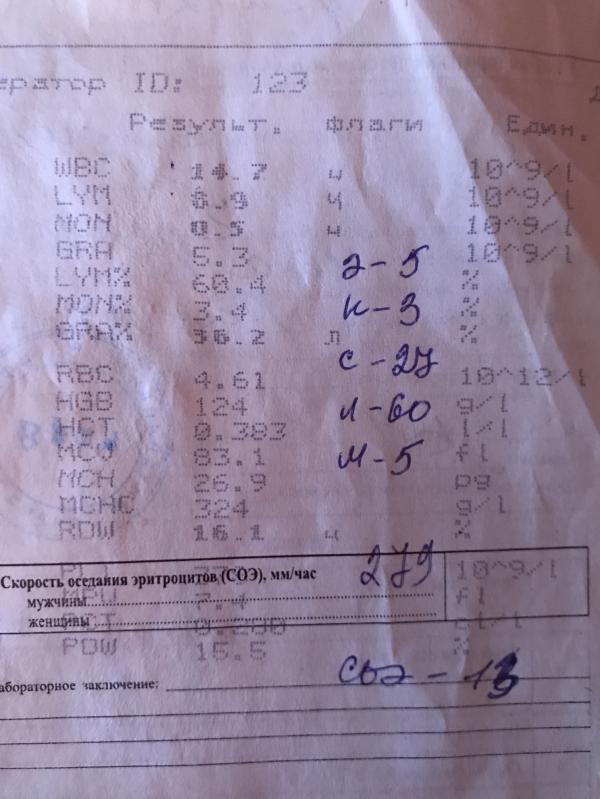 ератор ID: 123
Результ. флаги Един.
WBC 14.7 ч 10^9/l
LYM 8.9 ч 10^9/l
MON 0.5 ч 10^9/l
GRA 5.3 10^9/l
э - 5
LYM% 60.4 %
MON% 3.4 %
н - 3
GRA% 36.2 л %
с - 27
RBC 4.61 10^12/l
HGB 124 g/l
л - 60
HCT 0.383 l/l
MCV 83.1 fl
м - 5
MCH 26.9 pg
MCHC 324 g/l
RDW 16.1 ч %
279 10^9/l
Скорость оседания эритроцитов (СОЭ), мм/час
мужчины 7.4 fl
женщины
PDW 15.5 %
СОЭ - 13
абораторное заключение: